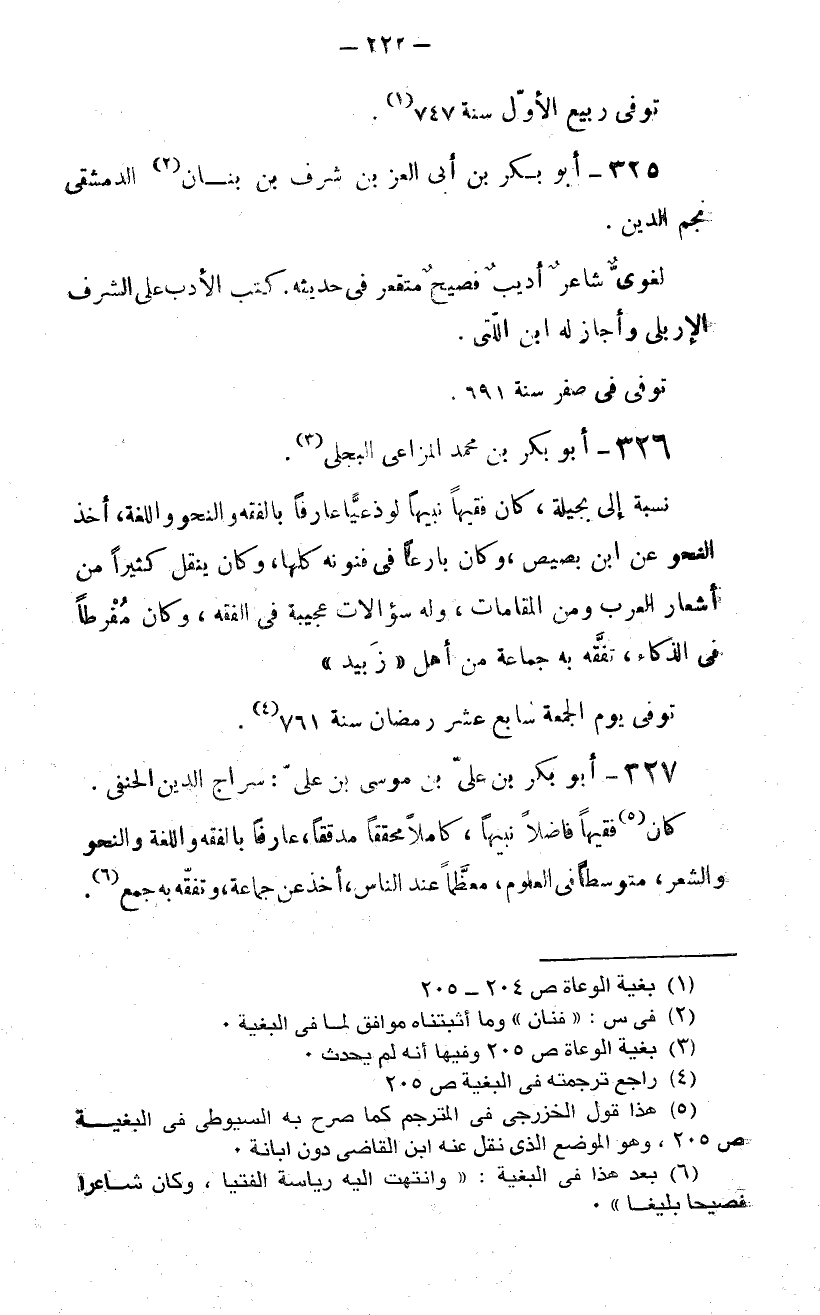 — ٢٢٢ —
توفى ربيع الأوّل سنة ٧٤٧(١) .
٣٢٥ – أبو بكر بن أبى العز بن شرف بن بنــان(٢) الدمشقى
نجم الدين .
لغوىٌّ شاعرٌ أديبٌ فصيحٌ متقعر فى حديثه. كتب الأدب على الشرف
الإربلى وأجاز له ابن اللّتى .
توفى فى صفر سنة ٦٩١ .
٣٢٦ – أبو بكر بن محمد المزاعى البجلى(٣) .
نسبة إلى بجيلة ، كان فقيهاً نبيهاً لوذعيًّا عارفاً بالفقه والنحو واللغة، أخذ
النحو عن ابن بصيص ،وكان بارعاً فى فنونه كلها، وكان ينقل كثيراً من
أشعار العرب ومن المقامات ، وله سؤالات عجيبة فى الفقه ، وكان مُفْرطاً
فى الذكاء ، تفَّقه به جماعة من أهل « زَبيد »
توفى يوم الجمعة سابع عشر رمضان سنة ٧٦١(٤) .
٣٢٧ – أبو بكر بن علىّ بن موسى بن علىّ : سراج الدين الحنفى .
كان(٥) فقيهاً فاضلاً نبيهاً ، كاملاً محققاً مدققاً، عارفاً بالفقه واللغة والنحو
والشعر ، متوسطاً فى العلوم ، معظَّماً عند الناس ،أخذ عن جماعة، وتفقّه به جمع(٦) .
(١) بغية الوعاة ص ٢٠٤ – ٢٠٥
(٢) فى س : « فنان » وما أثبتناه موافق لمـا فى البغية .
(٣) بغية الوعاة ص ٢٠٥ وفيها أنه لم يحدث .
(٤) راجع ترجمته فى البغية ص ٢٠٥
(٥) هذا قول الخزرجى فى المترجم كما صرح به السيوطى فى البغيــة
ص ٢٠٥ ، وهو الموضع الذى نقل عنه ابن القاضى دون ابانة .
(٦) بعد هذا فى البغية : « وانتهت اليه رياسة الفتيا ، وكان شــاعرا
فصيحا بليغــا » .